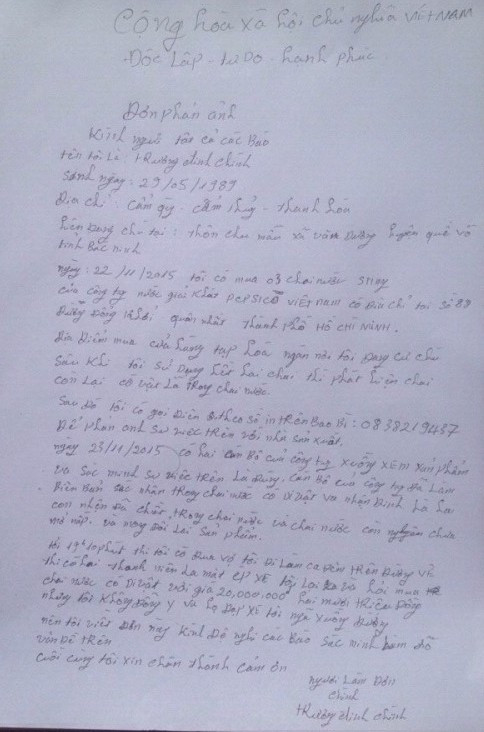 Cộng hòa xã hội chủ nghĩa VIỆT NAM
Độc Lập - tự Do - hạnh phúc
Đơn phản ánh
Kính ngửi tất cả các Báo
tên tôi Là trương đình chinh
Sanh ngày: 29/05/1989
Địa chỉ: cẩm qúy - cẩm thủy - thanh hóa
hiện Đang chú tại: thôn chu mẫu xã vân dương huyện quế võ
tỉnh Bắc ninh
ngày: 22/11/2015 tôi có mua 03 chai nước sting
của công ty nước giải khát PEPSICO VIỆT NAM có Địa chỉ tại số 88
Đường Đồng khởi quận nhất thành phố HỒ CHÍ MINH.
Địa Điểm mua cửa hàng tạp hóa ngần nơi tôi Đang cư chú
Sau Khi tôi sử Dụng hết hai chai thì phát hiện chai
còn Lại có vật Lạ trong chai nước.
Sau Đó tôi có gọi Điện theo số in trên Bao Bì: 0838219437
Để phản ánh Sự việc trên với nhà sản xuất.
ngày 23/11/2015 có hai cán Bộ của công ty xuống XEM sản phẩm
và Sác minh Sự việc trên Là Đúng. cán Bộ của công ty Đã Làm
Biên Bản sác nhận trong chai nước có Dị vật và nhận Định Là hai
con nhện Đã chết trong chai nước và chai nước còn nguyên chưa
mở nắp. và mong Đổi Lại Sản phẩm.
hồi 19h10 phút thì tôi có Đưa vợ tôi Đi Làm ca Đêm trên Đường về
thì có hai thanh niên Lạ mặt ép XE tôi Lại và hỏi mua
chai nước có Dị vật với giá 20,000.000 hai mươi triệu Đồng
nhưng tôi không Đồng ý và họ Đạp XE tôi ngã xuống Đường
nên tôi viết Đơn này kính Đề nghị các Báo Sác minh Làm Rõ
vấn Đề trên
cuối cùng tôi xin chân thành cảm ơn
người Làm Đơn
chinh
trương đình chinh